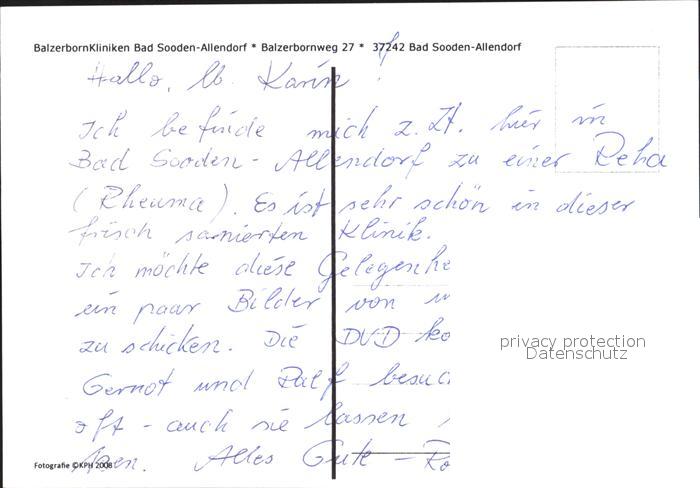 BalzerbornKliniken Bad Sooden-Allendorf * Balzerbornweg 27 * 37242 Bad Sooden-Allendorf
Hallo, lb. Karin !
Ich befinde mich z. Zt. hier in
Bad Sooden-Allendorf zu einer Reha
(Rheuma). Es ist sehr schön in dieser
frisch sanierten Klinik.
Ich möchte diese Gelegenhe
ein paar Bilder von
zu schicken. Die DVD ko
privacy protection
Datenschutz
Gernot und Ralf besuc
oft - auch sie lassen
Alles Gute - Ro
Fotografie ©KPH 2008